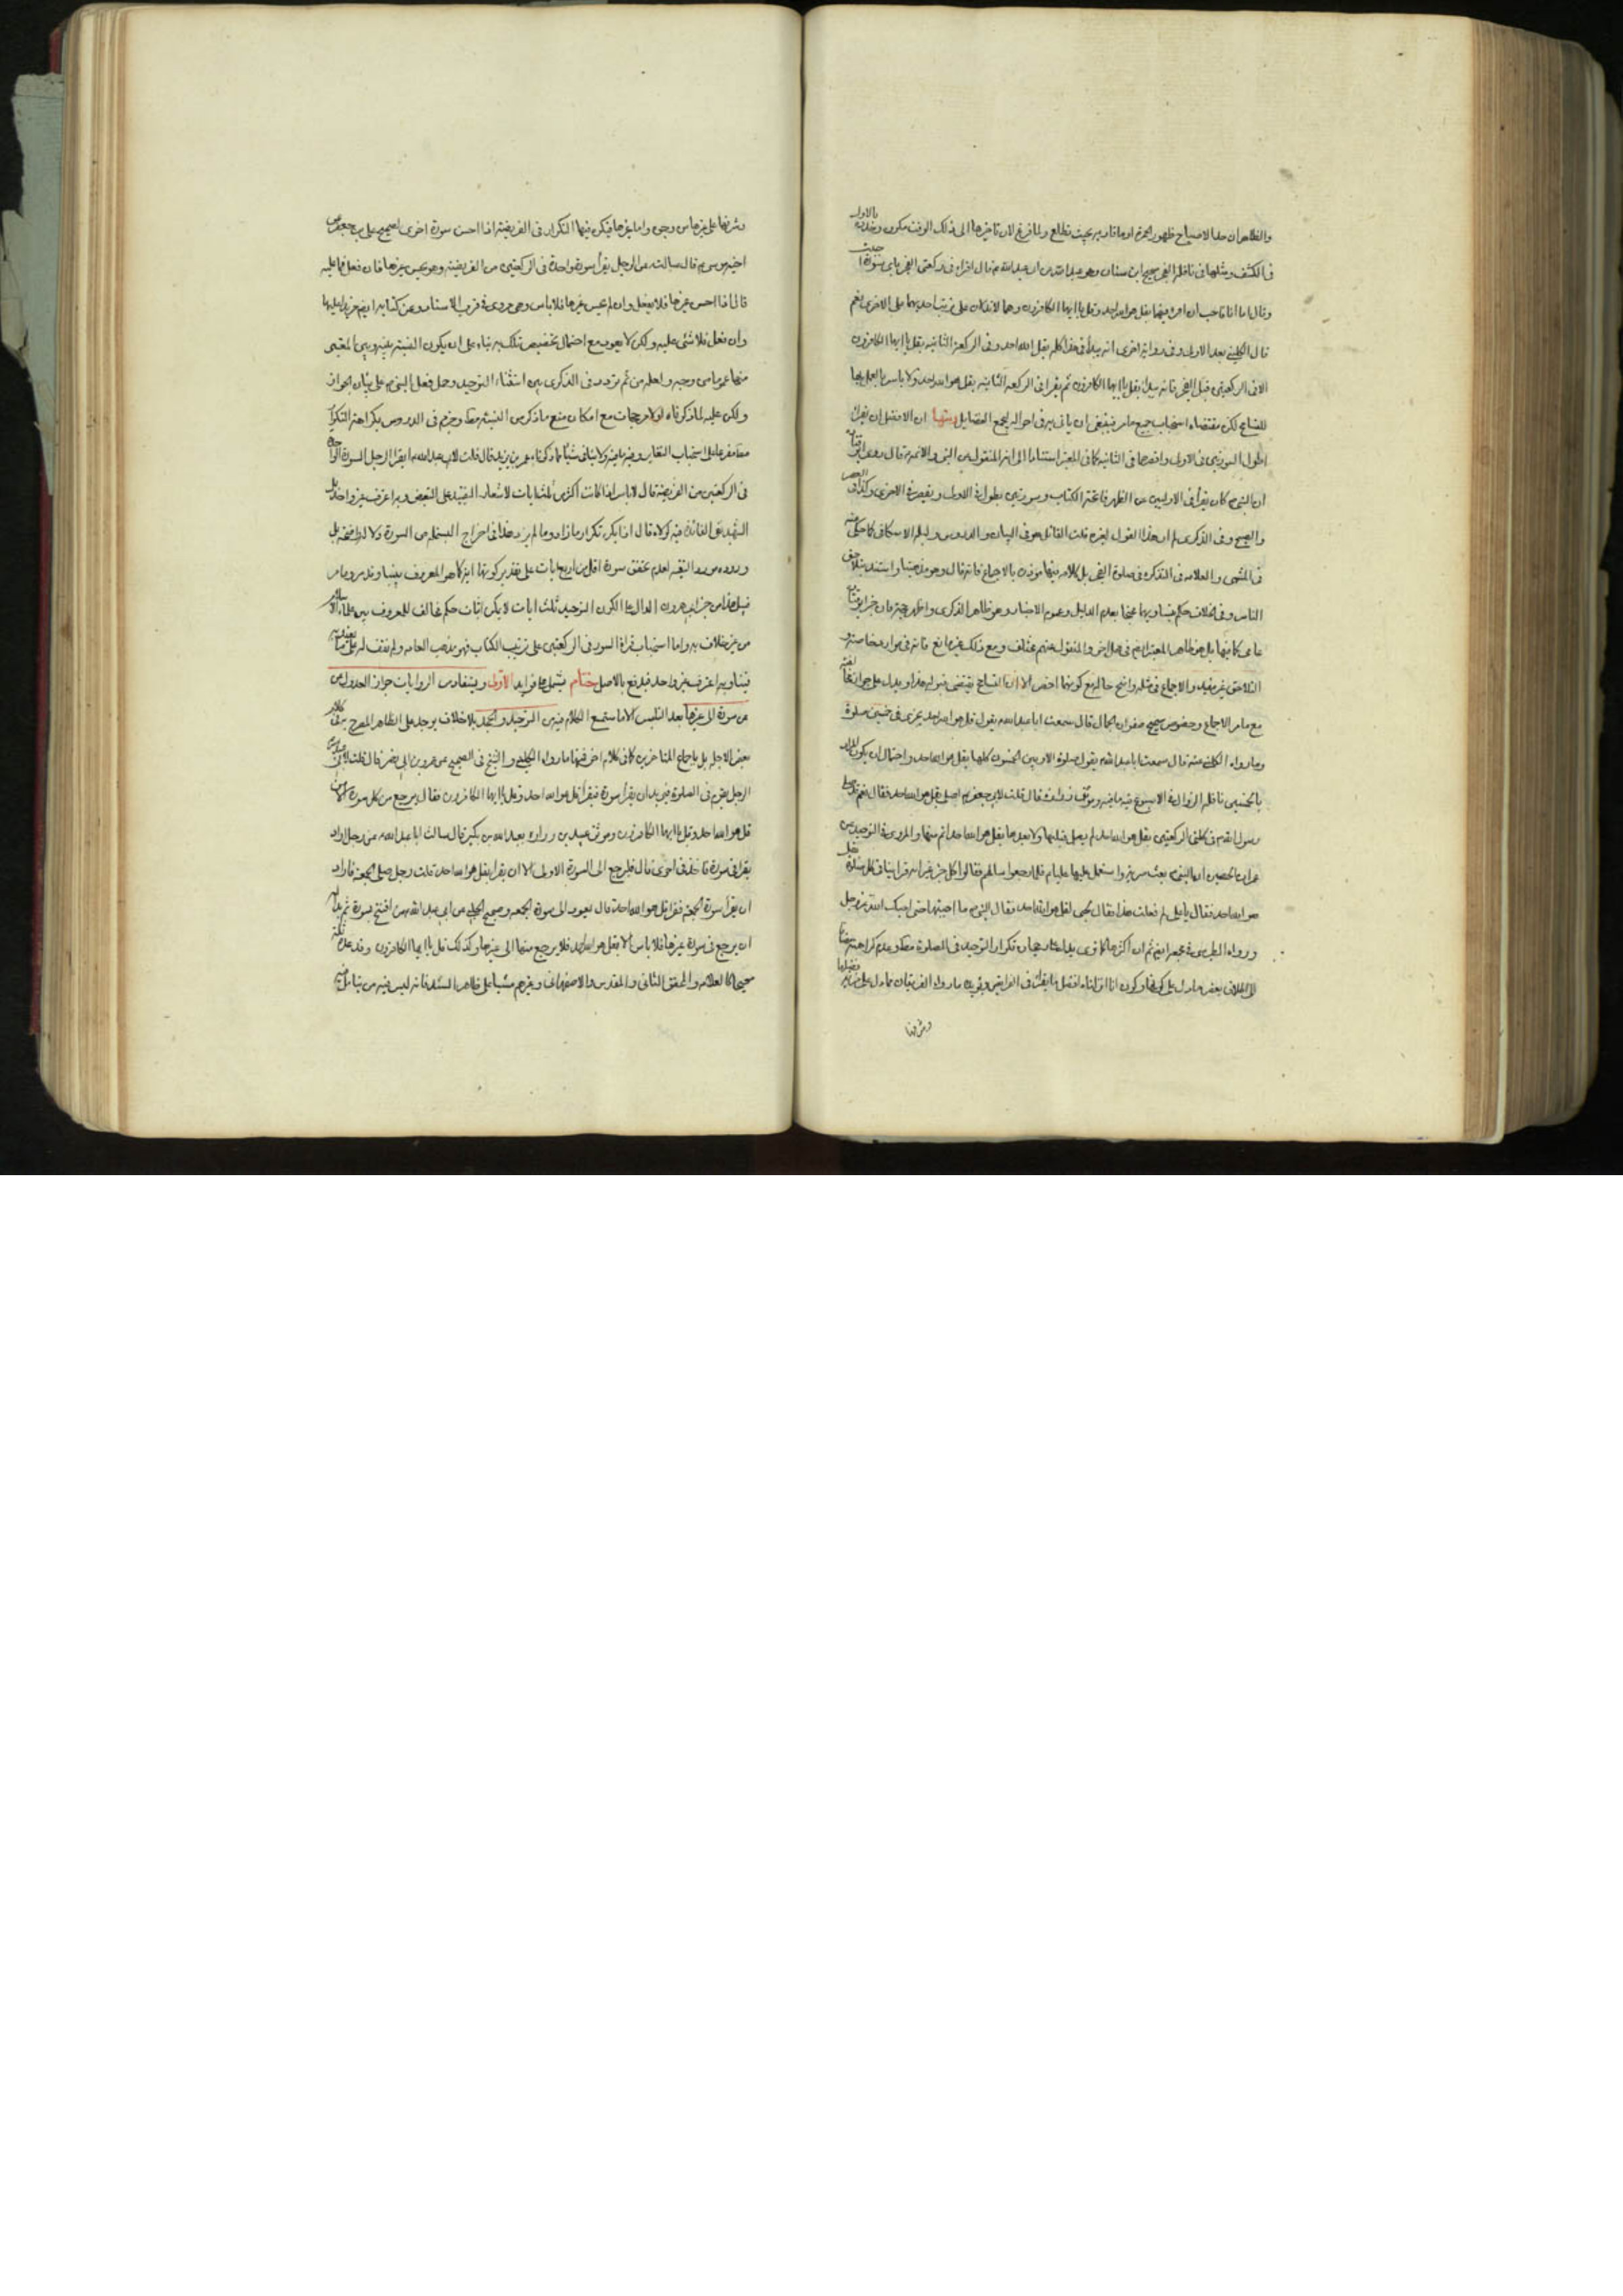 والظاهر ان حد الاصباح ظهور الحمرة او ما قاربه بحيث تطلع ولما فرغ لان تاخيرها الى ذلك الوقت مكروه
في الكشف ومثلها في نافلة الفجر صحيح ابن سنان وهو عبد الله عن ابي عبد الله ع قال اقرا في ركعتي الفجر باي سورة
وقال اما انا فاحب ان اقرء فيهما بقل هو الله احد وقل يا ايها الكافرون وهما لا يدلان على ترتيب احديهما على الاخرى نعم
قال الكليني بعد الاولى وفي رواية اخرى انه يبدأ في هذا كله بقل الله احد وفي الركعة الثانية بقل يا ايها الكافرون
الا في الركعتين قبل الفجر فانه يبدأ بقل يا ايها الكافرون ثم يقرا في الركعة الثانية بقل هو الله احد ولا باس بالعمل بها
للتسامح لكن مقتضاه استحباب جميع ما مر فينبغي ان ياتي به في احواله ليجمع الفضايل ومنها ان الافضل ان يقرا
اطول السورتين في الاولى واقصرهما في الثانية كما في المعتبر استنادا الى انه المنقول عن النبي والائمة قال روى ابو قتادة
ان النبي ص كان يقرأ في الاوليين من الظهر فاتحة الكتاب وسورتين يطول في الاولى ويقصر في الاخرى وكذا في العصر
والصبح وفي الذكرى لم ار هذا القول لغيره قلت القائل هو في البيان والدروس وقبله الاسكافي كما حكي عنه
في المنتهى والعلامة في التذكرة في صلوة الفجر بل كلامه فيها موذن بالاجماع فانه قال وهو مذهبنا واستدل بتلاحق
الناس وفي الخلاف حكم بتساويهما محتجا بعدم الدليل وعموم الاخبار وهو ظاهر الذكرى
عامي كما فيها بل هو ظاهر المعتبر ايضا في محل اخر والمنقول عنهم مختلف ومع ذلك غير مانع فانه في موارد خاصة
التلاحق غير مفيد والاجماع في مثله واضح حاله مع كونهما اخص الا ان التسامح يقتضي قبوله هذا ويدل على جواز
مع ما مر الاجماع وخصوص صحيح صفوان الجمال قال سمعت ابا عبد الله ع يقول قل هو الله احد تجزي في خمسين صلوة
وما رواه الكليني عنه قال سمعت ابا عبد الله ع يقول صلوة الاوابين الخمسون كلها بقل هو الله احد واحتمال ان يكون المراد
بالخمسين نافلة الزوال في الاسبوع فيه ما فيه وموثق زرارة قال قلت لابي جعفر ع اصلي بقل هو الله احد فقال نعم قد صلى
رسول الله ص في كلتي الركعتين بقل هو الله احد لم يصل قبلها ولا بعدها بقل هو الله احد اتم منها والمروي في التوحيد عن
عمران بن الحصين ان النبي ص بعث سرية واستعمل عليها عليا ع فلما رجعوا سالهم فقالوا كل خير غير انه قرا بنا في كل صلوة
هو الله احد فقال يا علي لم فعلت هذا فقال لحبي لقل هو الله احد فقال النبي ص ما احببتها حتى احبك الله عز وجل
ورواه الطبرسي في مجمعه ايضا ثم ان اكثرها كما ترى يدل على رجحان تكرار التوحيد في الصلوة مطلقا وعدم كراهته
وشرفها
وشرفها على غيرها من وجوه واما غيرها فيكره فيها التكرار في الفريضة اذا احسن سورة اخرى لصحيح علي بن جعفر عن
اخيه موسى ع قال سالت عن الرجل يقرأ سورة واحدة في الركعتين من الفريضة وهو يحسن غيرها فان فعل فما عليه
قال اذا احسن غيرها فلا يفعل وان لم يحسن غيرها فلا باس وهي مروية في قرب الاسناد وعن كتابه ايضا بزيادة
وان فعل فلا شئ عليه ولكن لا يعود مع احتمال تخصيص ذلك به بناء على ان يكون النسبة بينه وبين المعتبر
منها عموما من وجه ولعله من ثم تردد في الذكرى بين استثناء التوحيد وحمل فعل النبي ص على بيان الجواز
ولكن عليه لما ذكرناه اولا مرجحات مع امكان منع ما ذكر من النسبة مطلقا وجزم في الدروس بكراهة التكرار
ولا ينافي شيئا مما ذكرنا خبر عمر بن يزيد قال قلت لابي عبد الله ع ايقرا الرجل السورة الواحدة
في الركعتين من الفريضة قال لا باس اذا كانت اكثر من ثلث ايات لاشعار التقييد على التبعض وبه اعترف غير واحد بل
الشهيد نفى الفائدة فيه لولاه قال اذ لا يكره تكرار ما زاد وما لم يزد هذا في اخراج البسملة من السورة
وروده مورد التقية لعدم تحقق سورة اقل من اربع ايات على تقدير كونها اية كما هو المعروف بيننا وقد مر
من غير خلاف به واما استحباب قراءة السور في الركعتين على ترتيب الكتاب فهو مذهب العامة ولم نقف له على
وبه اعترف غير واحد فيدفع بالاصل ختام يشتمل على فوايد الاولى ويستفاد من الروايات جواز العدول
من سورة الى غيرها بعد التلبس الا ما ستسمع الكلام فيه من التوحيد والجحد بلا خلاف يوجد على الظاهر المصرح به في كلام
بعض الاجلة بل باجماع المتاخرين كما في كلام اخر فمنها ما رواه الكليني والشيخ في الصحيح عن عمرو بن ابي نصر قال قلت لابي عبد الله
الرجل يقوم في الصلوة فيريد ان يقرأ سورة فيقرأ قل هو الله احد وقل يا ايها الكافرون فقال يرجع من كل سورة الا من
قل هو الله احد وقل يا ايها الكافرون وموثق عبيد بن زرارة بعبد الله بن بكير قال سالت ابا عبد الله ع عن رجل اراد
يقرا في سورة فاخذ في اخرى قال فليرجع الى السورة الاولى الا ان يقرا بقل هو الله احد قلت رجل صلى الجمعة فاراد
ان يقرأ سورة الجمعة فقرا قل هو الله احد قال يعود الى سورة الجمعة وصحيح الحلبي عن ابي عبد الله ع من افتتح بسورة ثم بدا له
ان يرجع في سورة غيرها فلا باس الا بقل هو الله احد فلا يرجع منها الى غيرها وكذلك قل يا ايها الكافرون وقد عده
صحيحا كالعلامة والمحقق الثاني والمقدس والاصفهاني وغيرهم